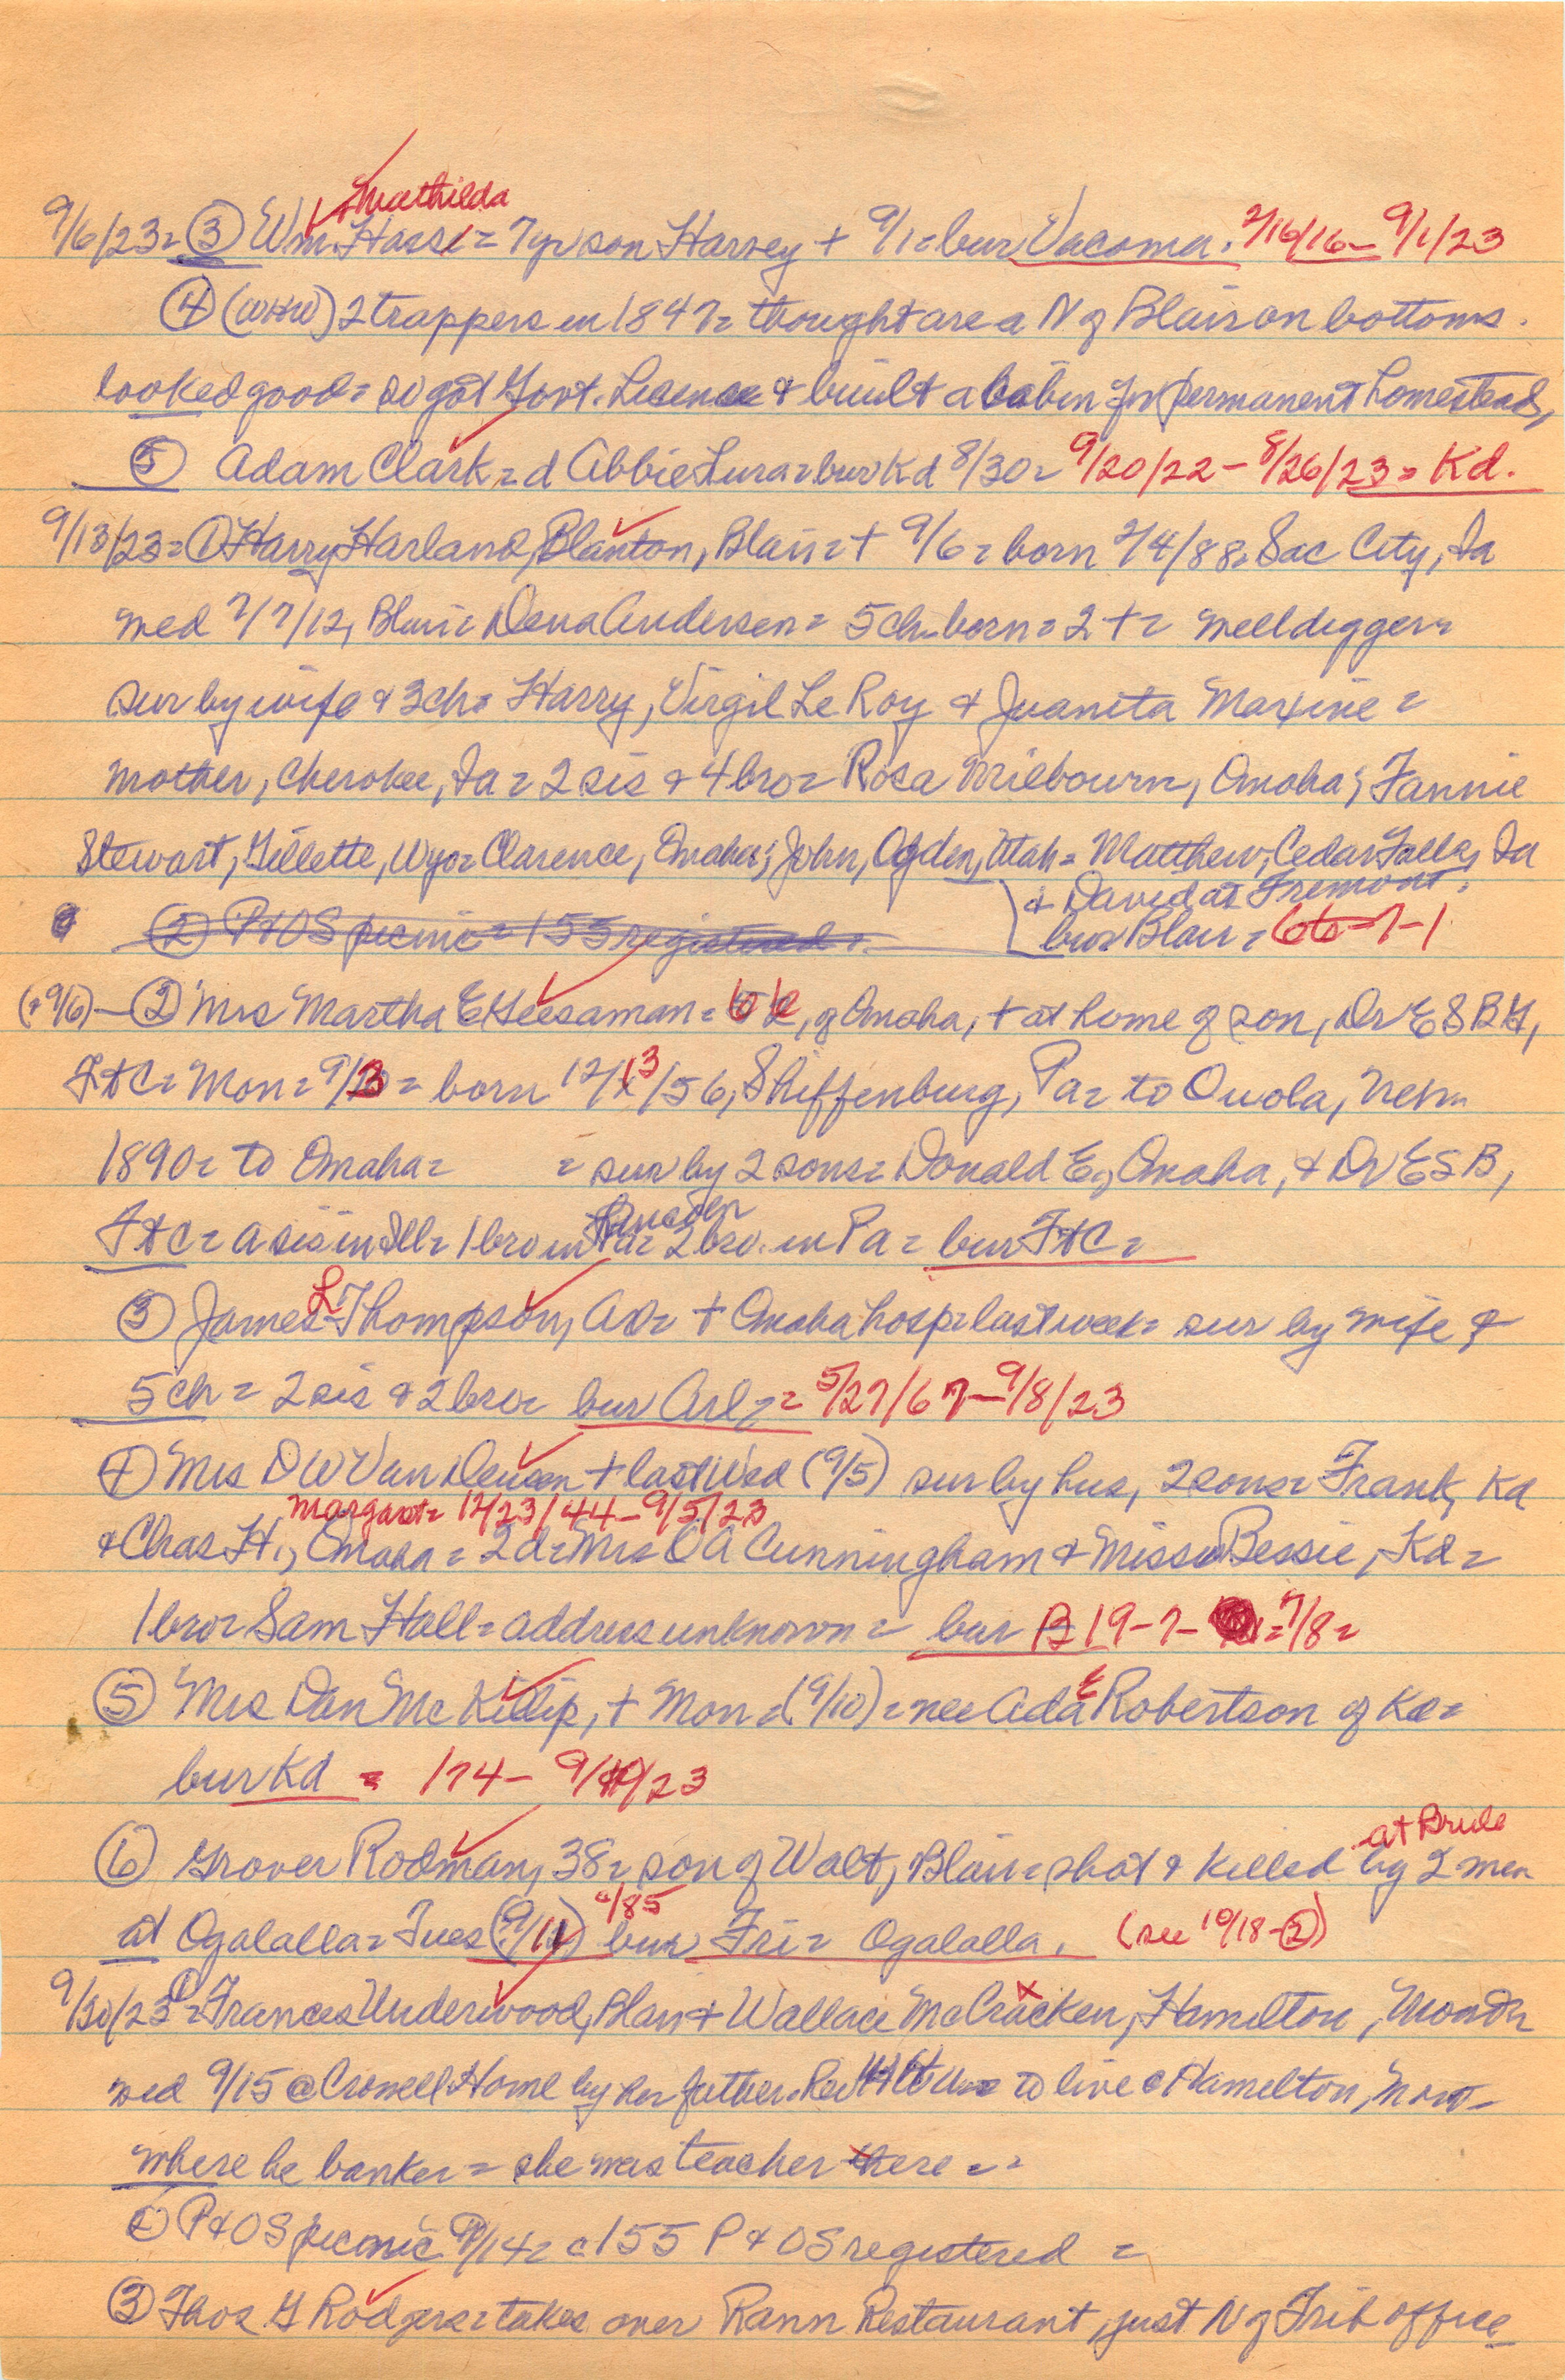 & Mathilda
9/6/23 = ③ Wm. Hasse = 7 yr son Harvey + 9/1 = bur Vacoma. 2/16/16 - 9/1/23
④ (WHW) 2 trappers in 1847 = thought are a N of Blair on bottoms.
looked good = so got Govt. License & built a cabin for permanent homestead,
⑤ Adam Clark = d Abbie Lura = bur Kd 8/30 = 9/20/22 - 8/26/23 = Kd.
9/13/23 = ① Harry Harland Blanton, Blair = + 9/6 = born 2/4/88 = Sac City, Ia
med 7/7/12, Blair = Dena Andersen = 5 ch born = 2 + = well digger =
sur by wife & 3 ch = Harry, Virgil Le Roy & Juanita Maxine =
mother, Cherokee, Ia = 2 sis & 4 bro = Rosa Milbourn, Omaha; Fannie
Stewart, Gillette, Wyo = Clarence, Omaha; John, Ogden, Utah = Matthew, Cedar Falls, Ia
& David at Fremont.
② P & OS picnic = 155 registered =
bur Blair = 66-7-1
(+ 9/6) - ② Mrs Martha E Heesaman = of Omaha, + at home of son, Dr E S B H,
Ft C = Mon = 9/3 = born 12/13/56, Shiffenburg, Pa = to Nebr
1890 = to Omaha = = sur by 2 sons = Donald E, Omaha, & Dr E S B,
Ft C = a sis in Ill = 1 bro in 2 bro. in Pa = bur Ft C =
③ James L Thompson, Ar = + Omaha hosp = last week = sur by wife &
5 ch = 2 sis & 2 bro = bur Arl = 5/27/67 - 9/8/23
④ Mrs D W Van Deusen + last Wed (9/5) sur by hus, 2 sons = Frank, Kd
Margaret = 12/23/44 - 9/5/23
& Chas H., Omaha = 2 d = Mrs O A Cunningham & Miss Bessie, Kd =
1 bro = Sam Hall = address unknown = bur B 19-7- = 7/8 =
⑤ Mrs Dan McKillip, + Mon = (9/10) = nee Ada E Robertson of Kd =
bur Kd = 174 - 9/10/23
at Brule
⑥ Grover Rodman, 38 = son of Walt, Blair = shot & killed by 2 men
/85
at Ogalalla = Tues (9/11) bur Fri = Ogalalla. (see 10/18-②)
9/20/23 ① = Frances Underwood, Blair & Wallace McCracken, Hamilton,
wed 9/15 @ Crowell Home by her father Rev to live @ Hamilton,
where he banker = she was teacher there =
② P & OS picnic 9/14 = @ 155 P & OS registered =
③ Thos G Rodgers = takes over Rann Restaurant, just N of Trib office